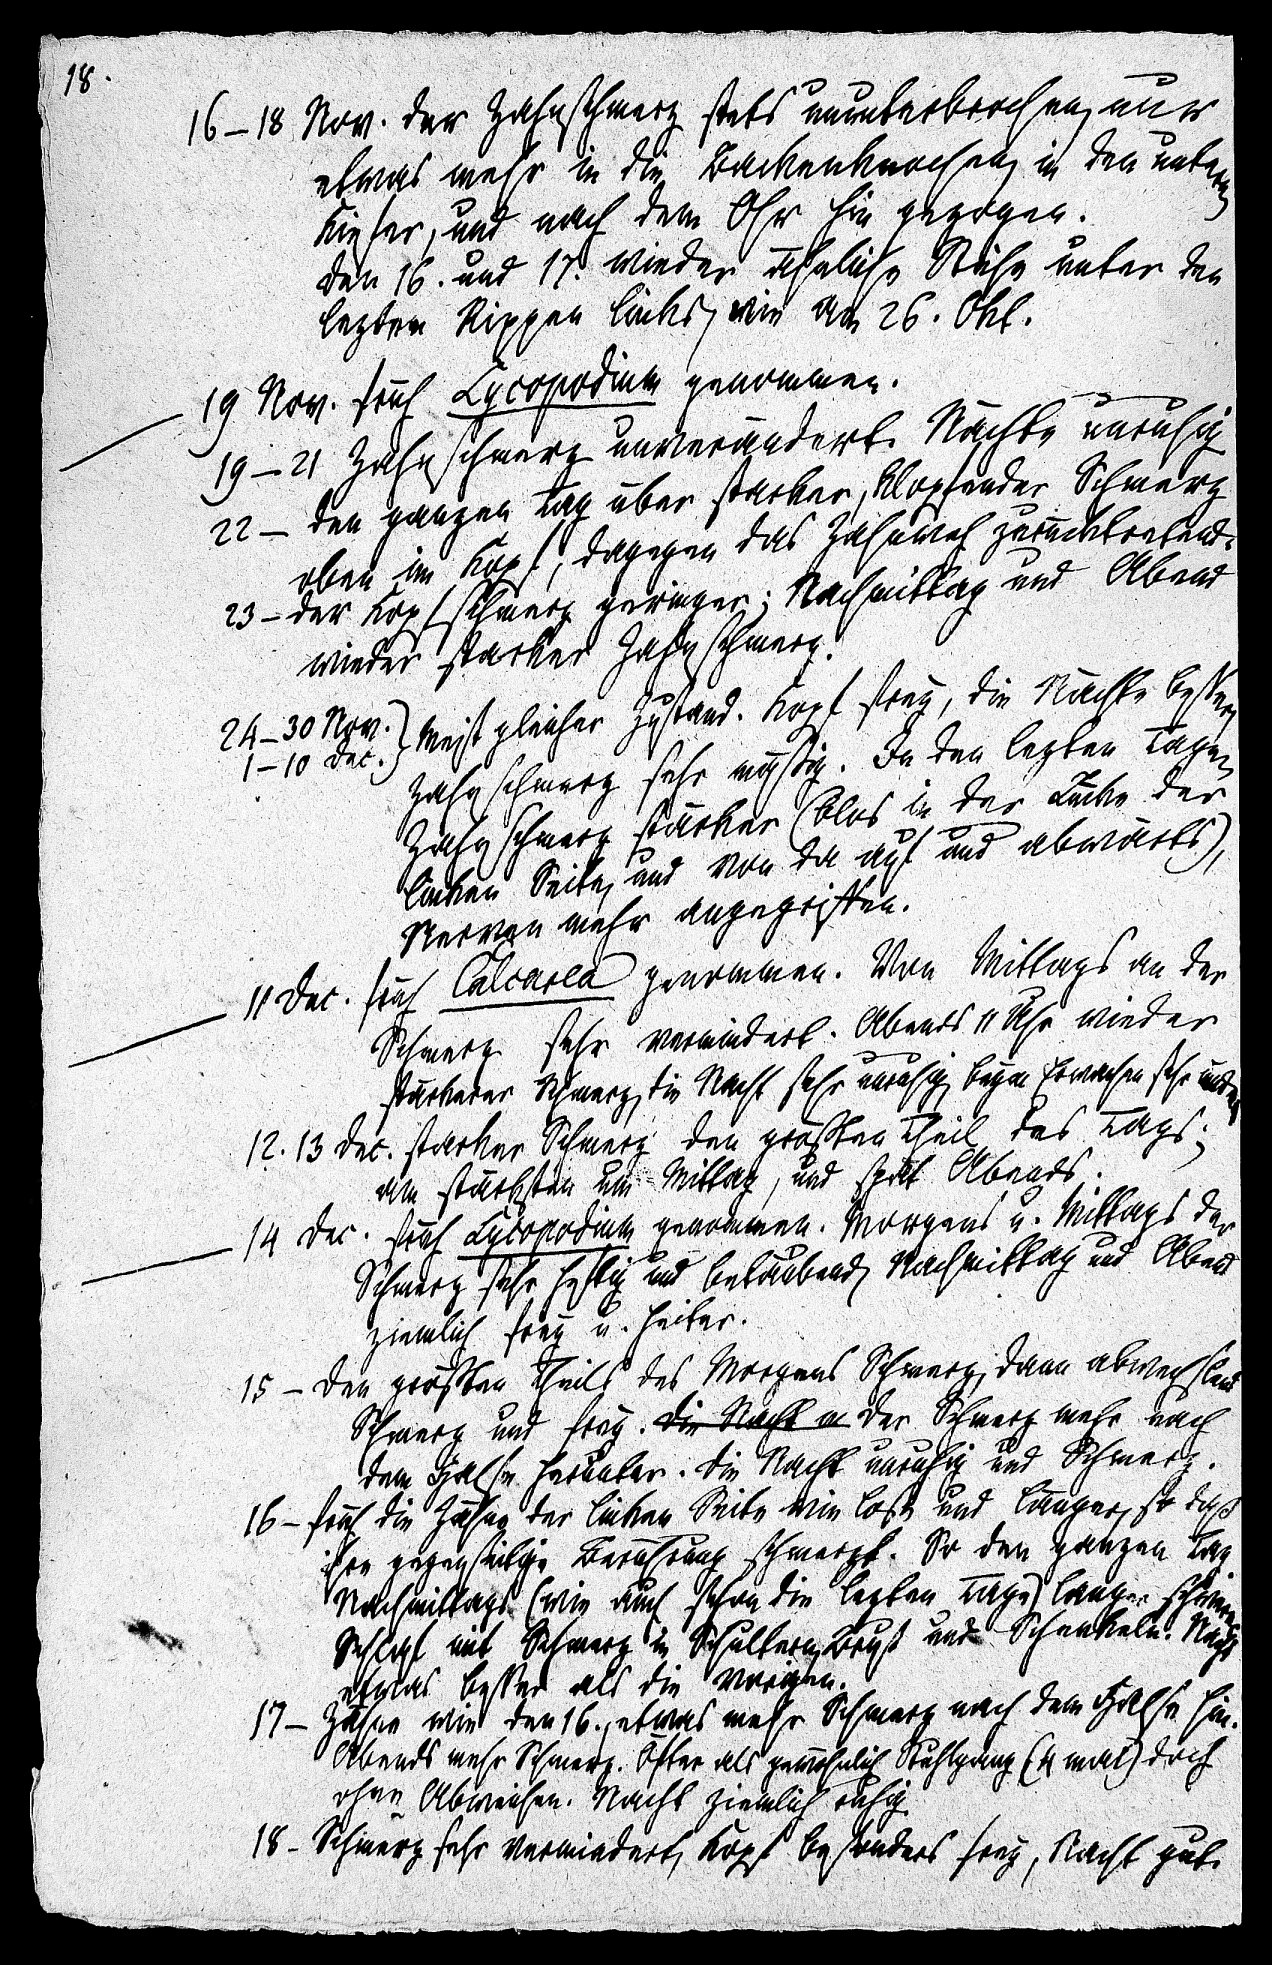 18.
16–18 Nov. der Zahnschmerz stets ununterbrochen, nur
etwas mehr in die Backenknochen, in den untern
Kiefer, und nach dem Ohr hin gezogen.
den 16. und 17. wieder ähnliche Stiche unter den
lezten Rippen links, wie am 26. Okt.
19 Nov. früh Lycopodium genommen.
19–21 Zahnschmerz unverändert. Nächte unruhig
22 – den ganzen Tag über starker, klopfender Schmerz
oben im Kopf, dagegen das Zahnweh zurücktretend.
23 – der Kopfschmerz geringer; Nachmittag und Abend
wieder starker Zahnschmerz.
24–30 Nov. } Meist gleicher Zustand. Kopf frey, die Nächte besser,
1–10 Dec.
Zahnschmerz sehr mäßig. In den lezten Tagen
Zahnschmerz stärker (blos in der Lücke der
linken Seite, und von da auf und abwärts),
Nerven mehr angegriffen.
11 Dec. früh Calcarea genommen. Von Mittags an der
Schmerz sehr vermindert. Abends 11 Uhr wieder
stärkerer Schmerz, die Nacht sehr unruhig, beym Erwachen sehr
12. 13 Dec. starker Schmerz den größten Theil des Tags;
am stärksten um Mittag, und spät Abends.
14 Dec. früh Lycopodium genommen. Morgens u. Mittags der
Schmerz sehr heftig und betäubend, Nachmittag und Abend
ziemlich frey u. heiter.
15 – Den größten Theils des Morgens Schmerz, dann abwechslend
Schmerz und frey. Die Nacht u der Schmerz mehr nach
dem Halse herunter. Die Nacht unruhig und Schmerz.
16 – früh die Zähne der linken Seite wie lose und länger, so daß
ihre gegenseitige Berührung schmerzt. So den ganzen Tag
Nachmittags (wie auch schon die lezten Tage) langer
Schlaf mit Schmerz in Schultern, Brust und Schenkeln. Nacht
etwas besser als die vorigen.
17 – Zähne wie den 16., etwas mehr Schmerz nach dem Halse hin.
Abends mehr Schmerz. Öfter als gewöhnlich Stuhlgang (4 mal) doch
ohne Abweichen. Nacht ziemlich ruhig
18 – Schmerz sehr vermindert, Kopf besonders frey, Nacht gut.